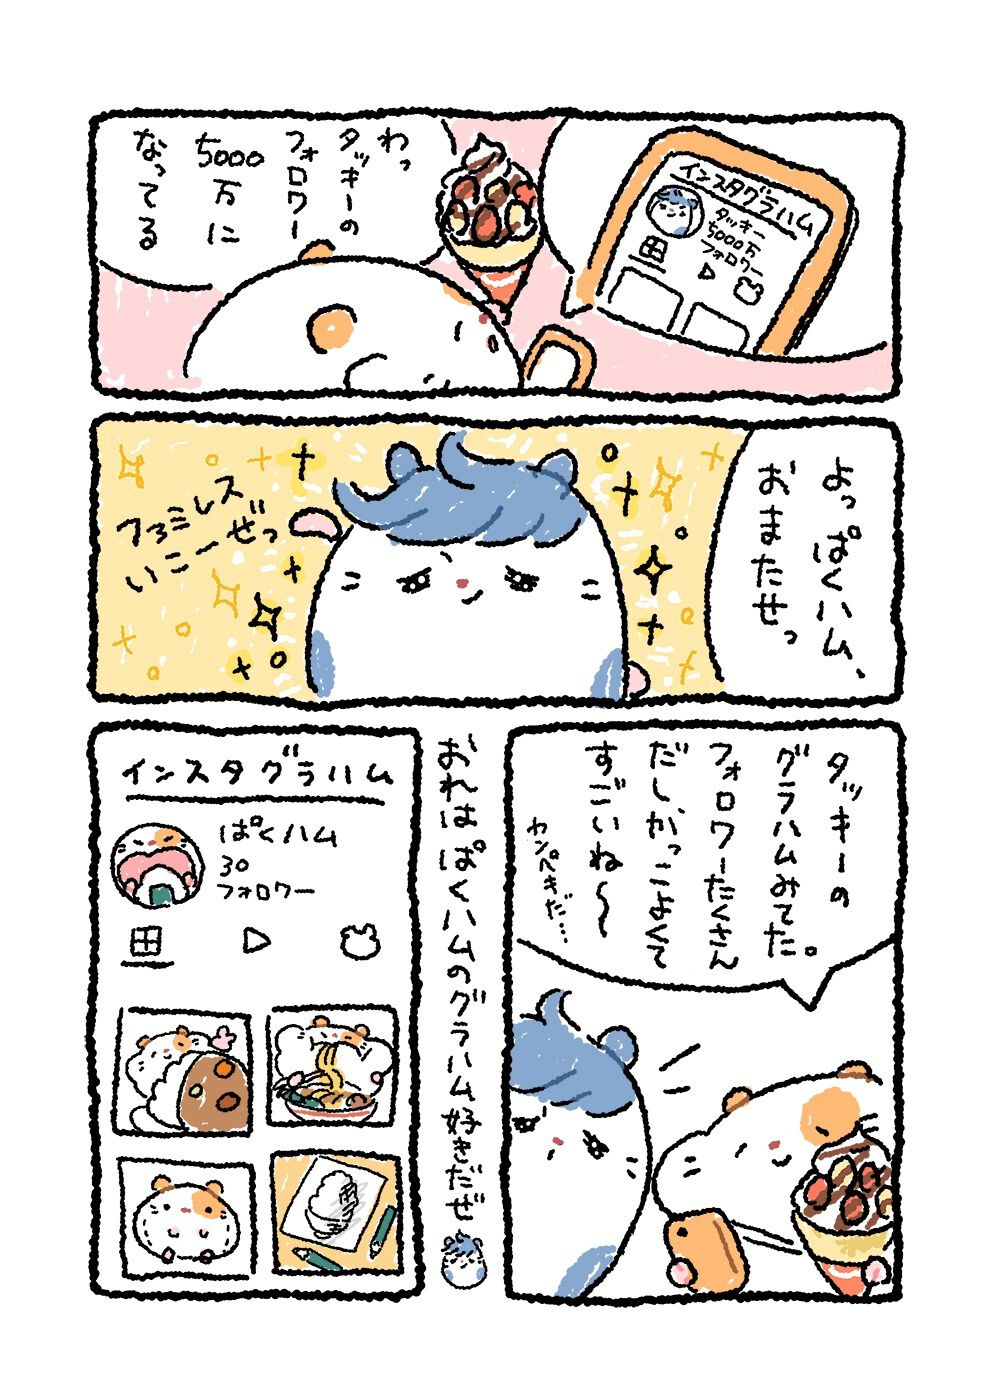 インスタグラハム
タッキー
5000万
フォロワー
わっ
タッキーの
フォロワー
5000
万に
なってる
よっ ぱくハム、
おまたせっ
ファミレス
いこーぜっ
タッキーの
グラハムみてた。
フォロワーたくさん
だし、かっこよくて
すごいね〜
カンペキだ…
おれはぱくハムのグラハム好きだぜ
インスタグラハム
ぱくハム
30
フォロワー